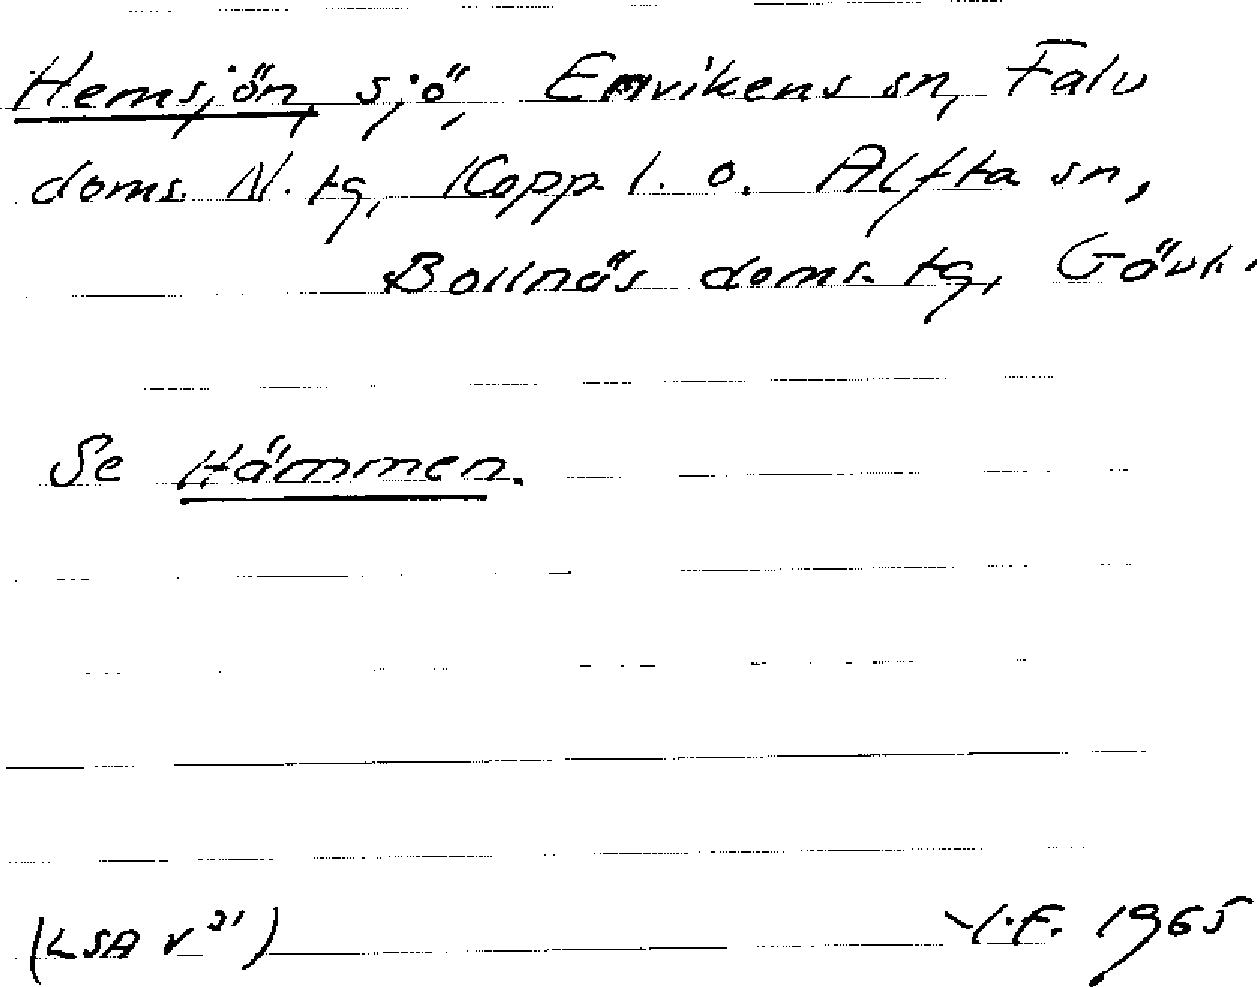 Hemsjön, sjö, Envikens sn, Falu
doms. N. tg, Kopp. l. o. Alfta sn,
Bollnäs doms. tg, Gävl.
Se Hämmen.
(LSA v 21) I.F. 1965